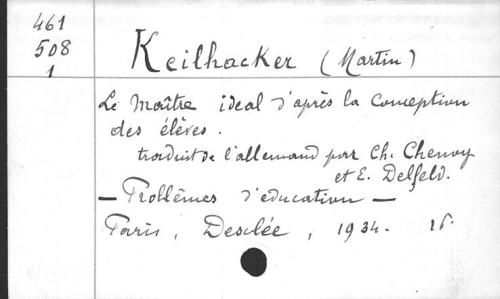 461
508
1
Keilhacker (Martin)
Le Maître ideal d'après la Conception
des élèves.
traduit de l'allemand par Ch. Chenoy
et E. Delfeld.
— Problèmes d'education —
Paris, Desclée, 1934. 16.